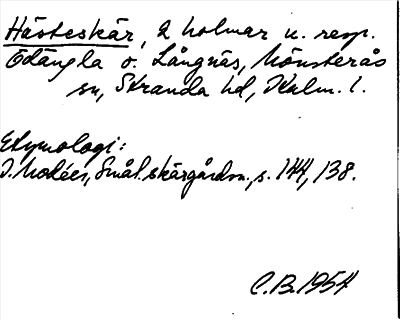 Hästeskär, 2 holmar u. resp.
Ödängla o. Långnäs, Mönsterås
sn, Stranda hd, Kalm. l.
Etymologi:
I. Modéer, Smål. skärgårdsn., s. 144, 138.
C.B. 1954